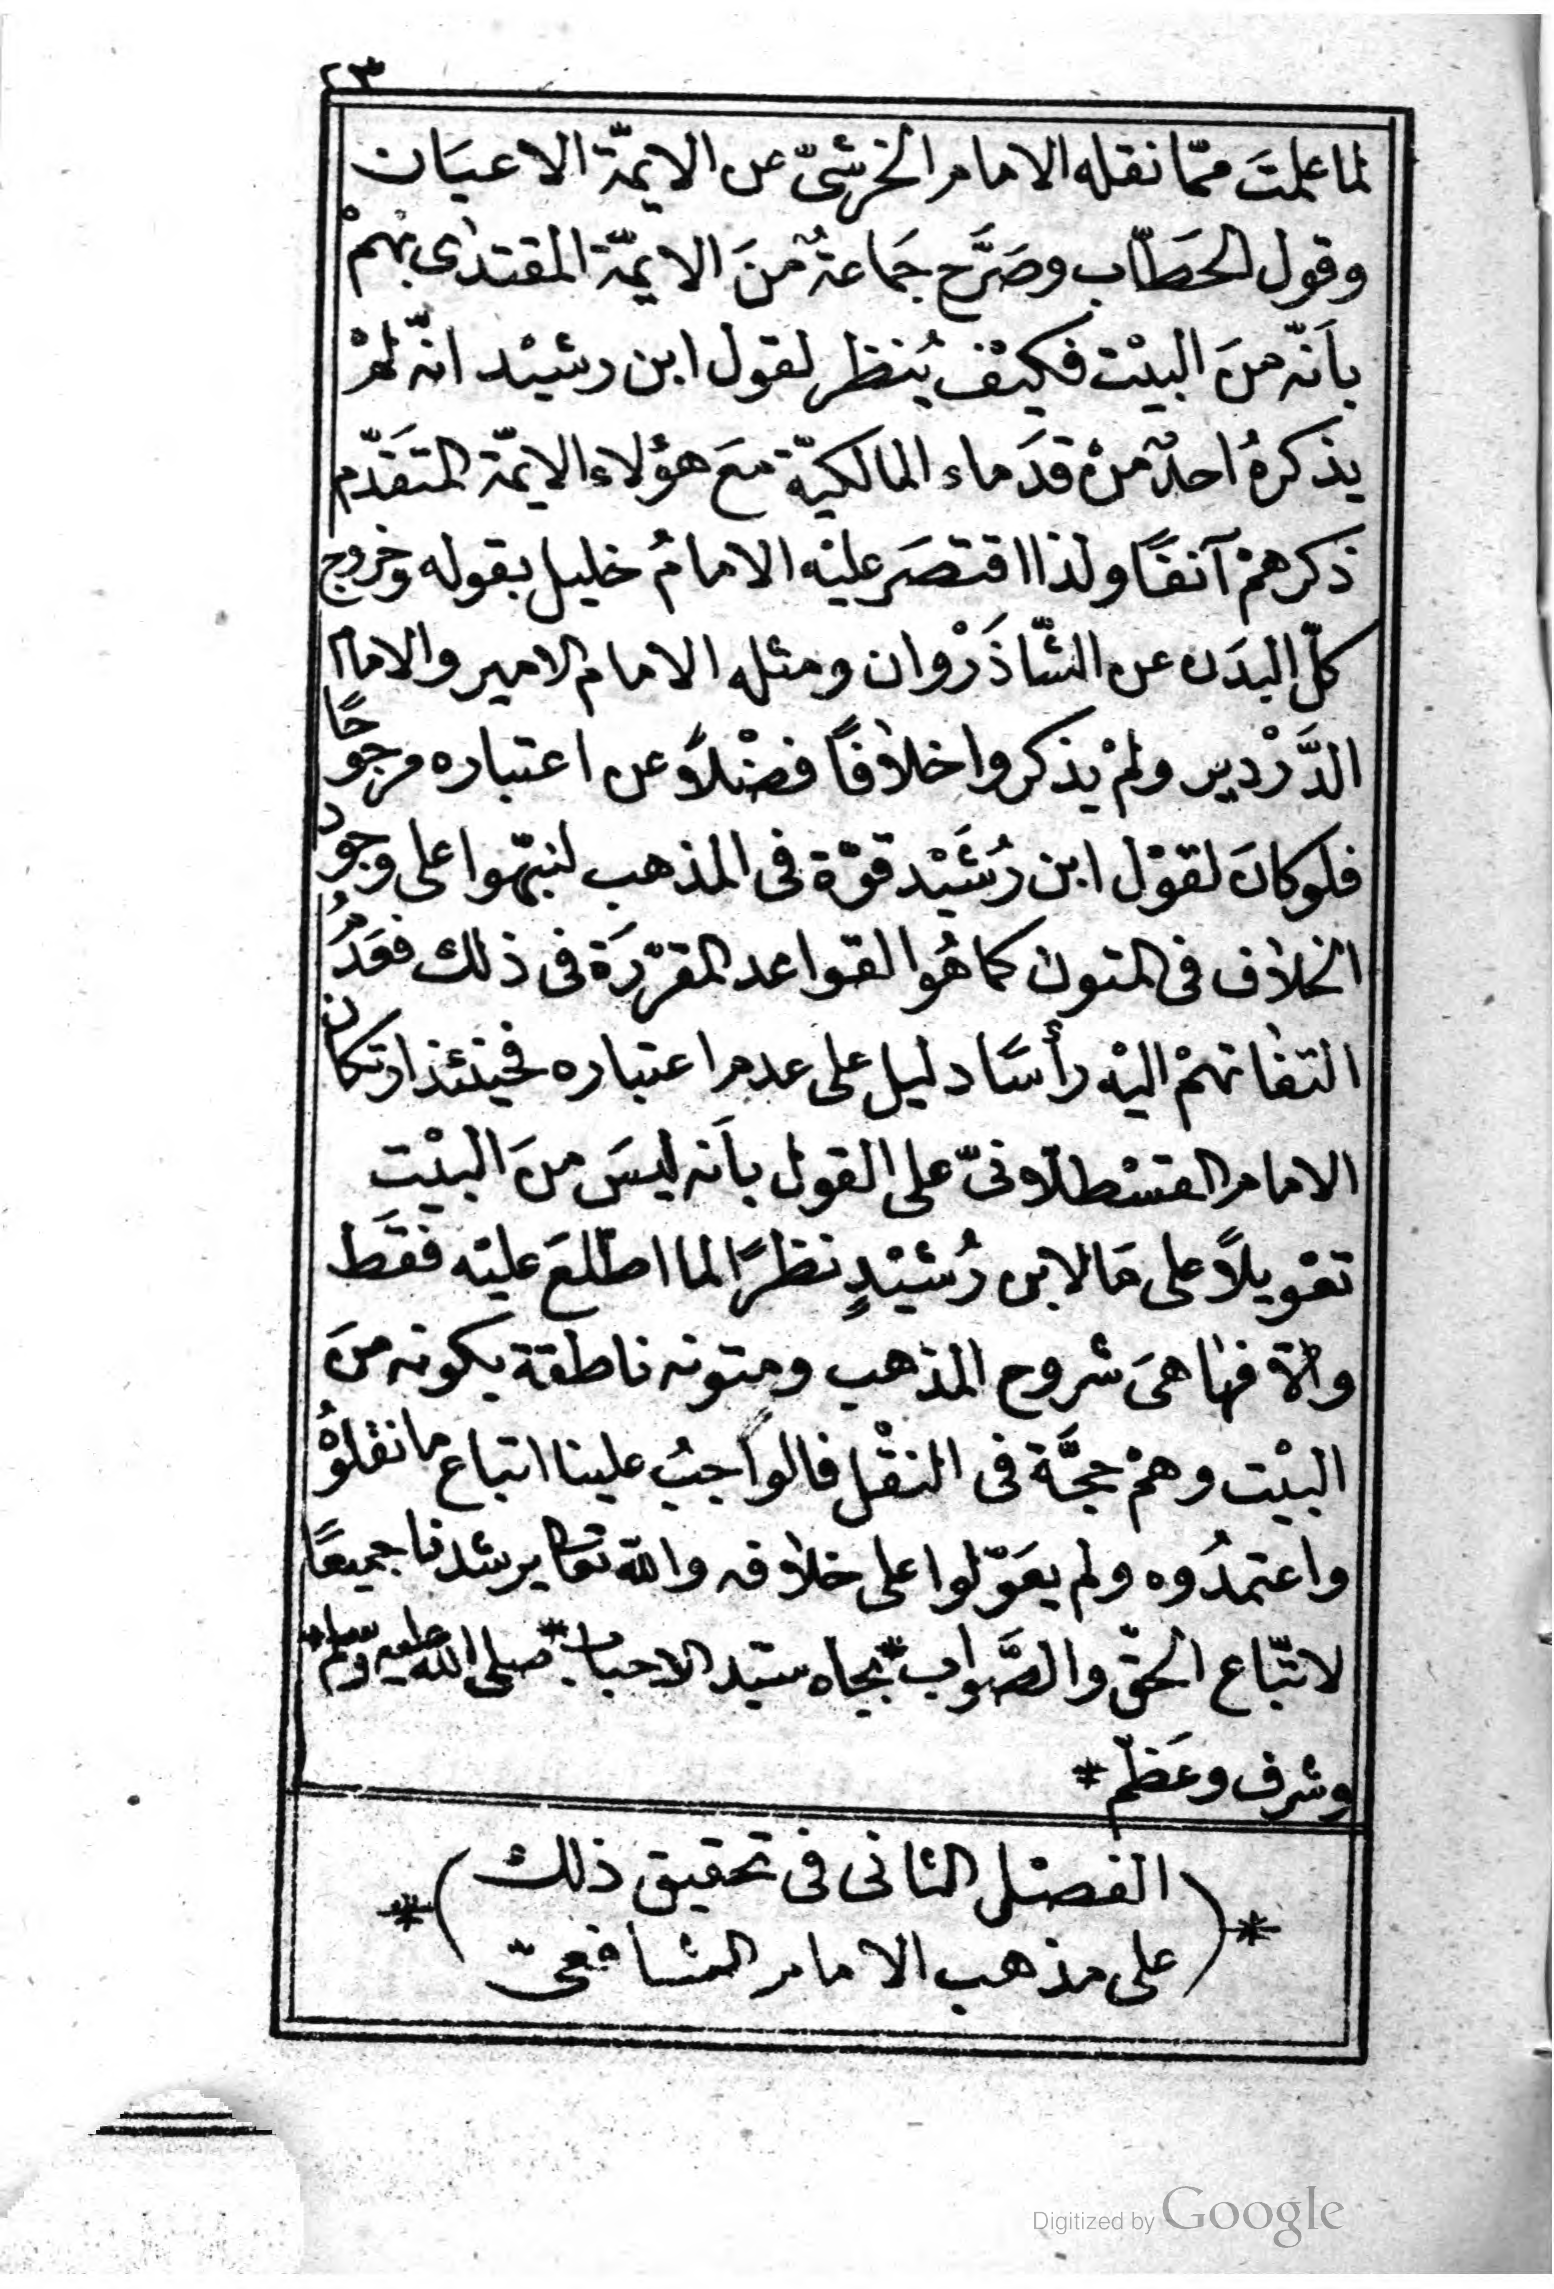 ٢٣
لما علمتَ ممّا نقله الامام الخرشىّ عن الايمّة الاعيَان
وقول الحَطّاب وصَرَّح جَماعةٌ منَ الايمّة المقتدٰى بهمْ
بأنّه منَ البيْت فكيْف يُنظر لقول ابن رشيْد انّه لمْ
يذكرهُ احدٌ منْ قدَماء المالكيّة معَ هؤلاء الايمّة المتقَدّم
ذكرهمْ آنفًا ولذا اقتصَر عليْه الامامُ خليل بقوله وخروج
كلّ البدَن عن الشّاذَرْوان ومثله الامام الامير والاما
الدَّرْدير ولمْ يذكروا خلافًا فضْلاً عن اعتباره مرجوحًا
فلو كانَ لقوْل ابن رُشَيْد قوّة فى المذهب لنبّهوا على وجود
الخلاف فى المتون كما هُوا القواعد المقرّرَة فى ذلك فعَدمُ
التفاتهمْ اليْه رأسًا دليل على عدم اعتباره فحينئذ ارتكان
الامام القسْطلّانىّ على القول بأنه ليسَ منَ البيْت
تعْويلاً على مَا لابن رُشيْدٍ نظرًا لما اطّلعَ عليْه فقَط
والّا فهٰا هىَ شروح المذهب ومتونه ناطقة بكونه منَ
البيْت وهمْ حجَّة فى النقْل فالواجبُ علينا اتباع ما نقلوْهُ
واعتمدُوه ولم يعَوّلوا على خلافه والله تعالى يرشدنا جميعًا
لاتّباع الحقّ والصَّواب * بجاه سيّد الاحباب * صلى الله عليه وسلم *
وشرف وعَظّم *
* (الفصْل الثانى فى تحقيق ذلك
على مذهب الامام الشافعىّ) *
Digitized by Google